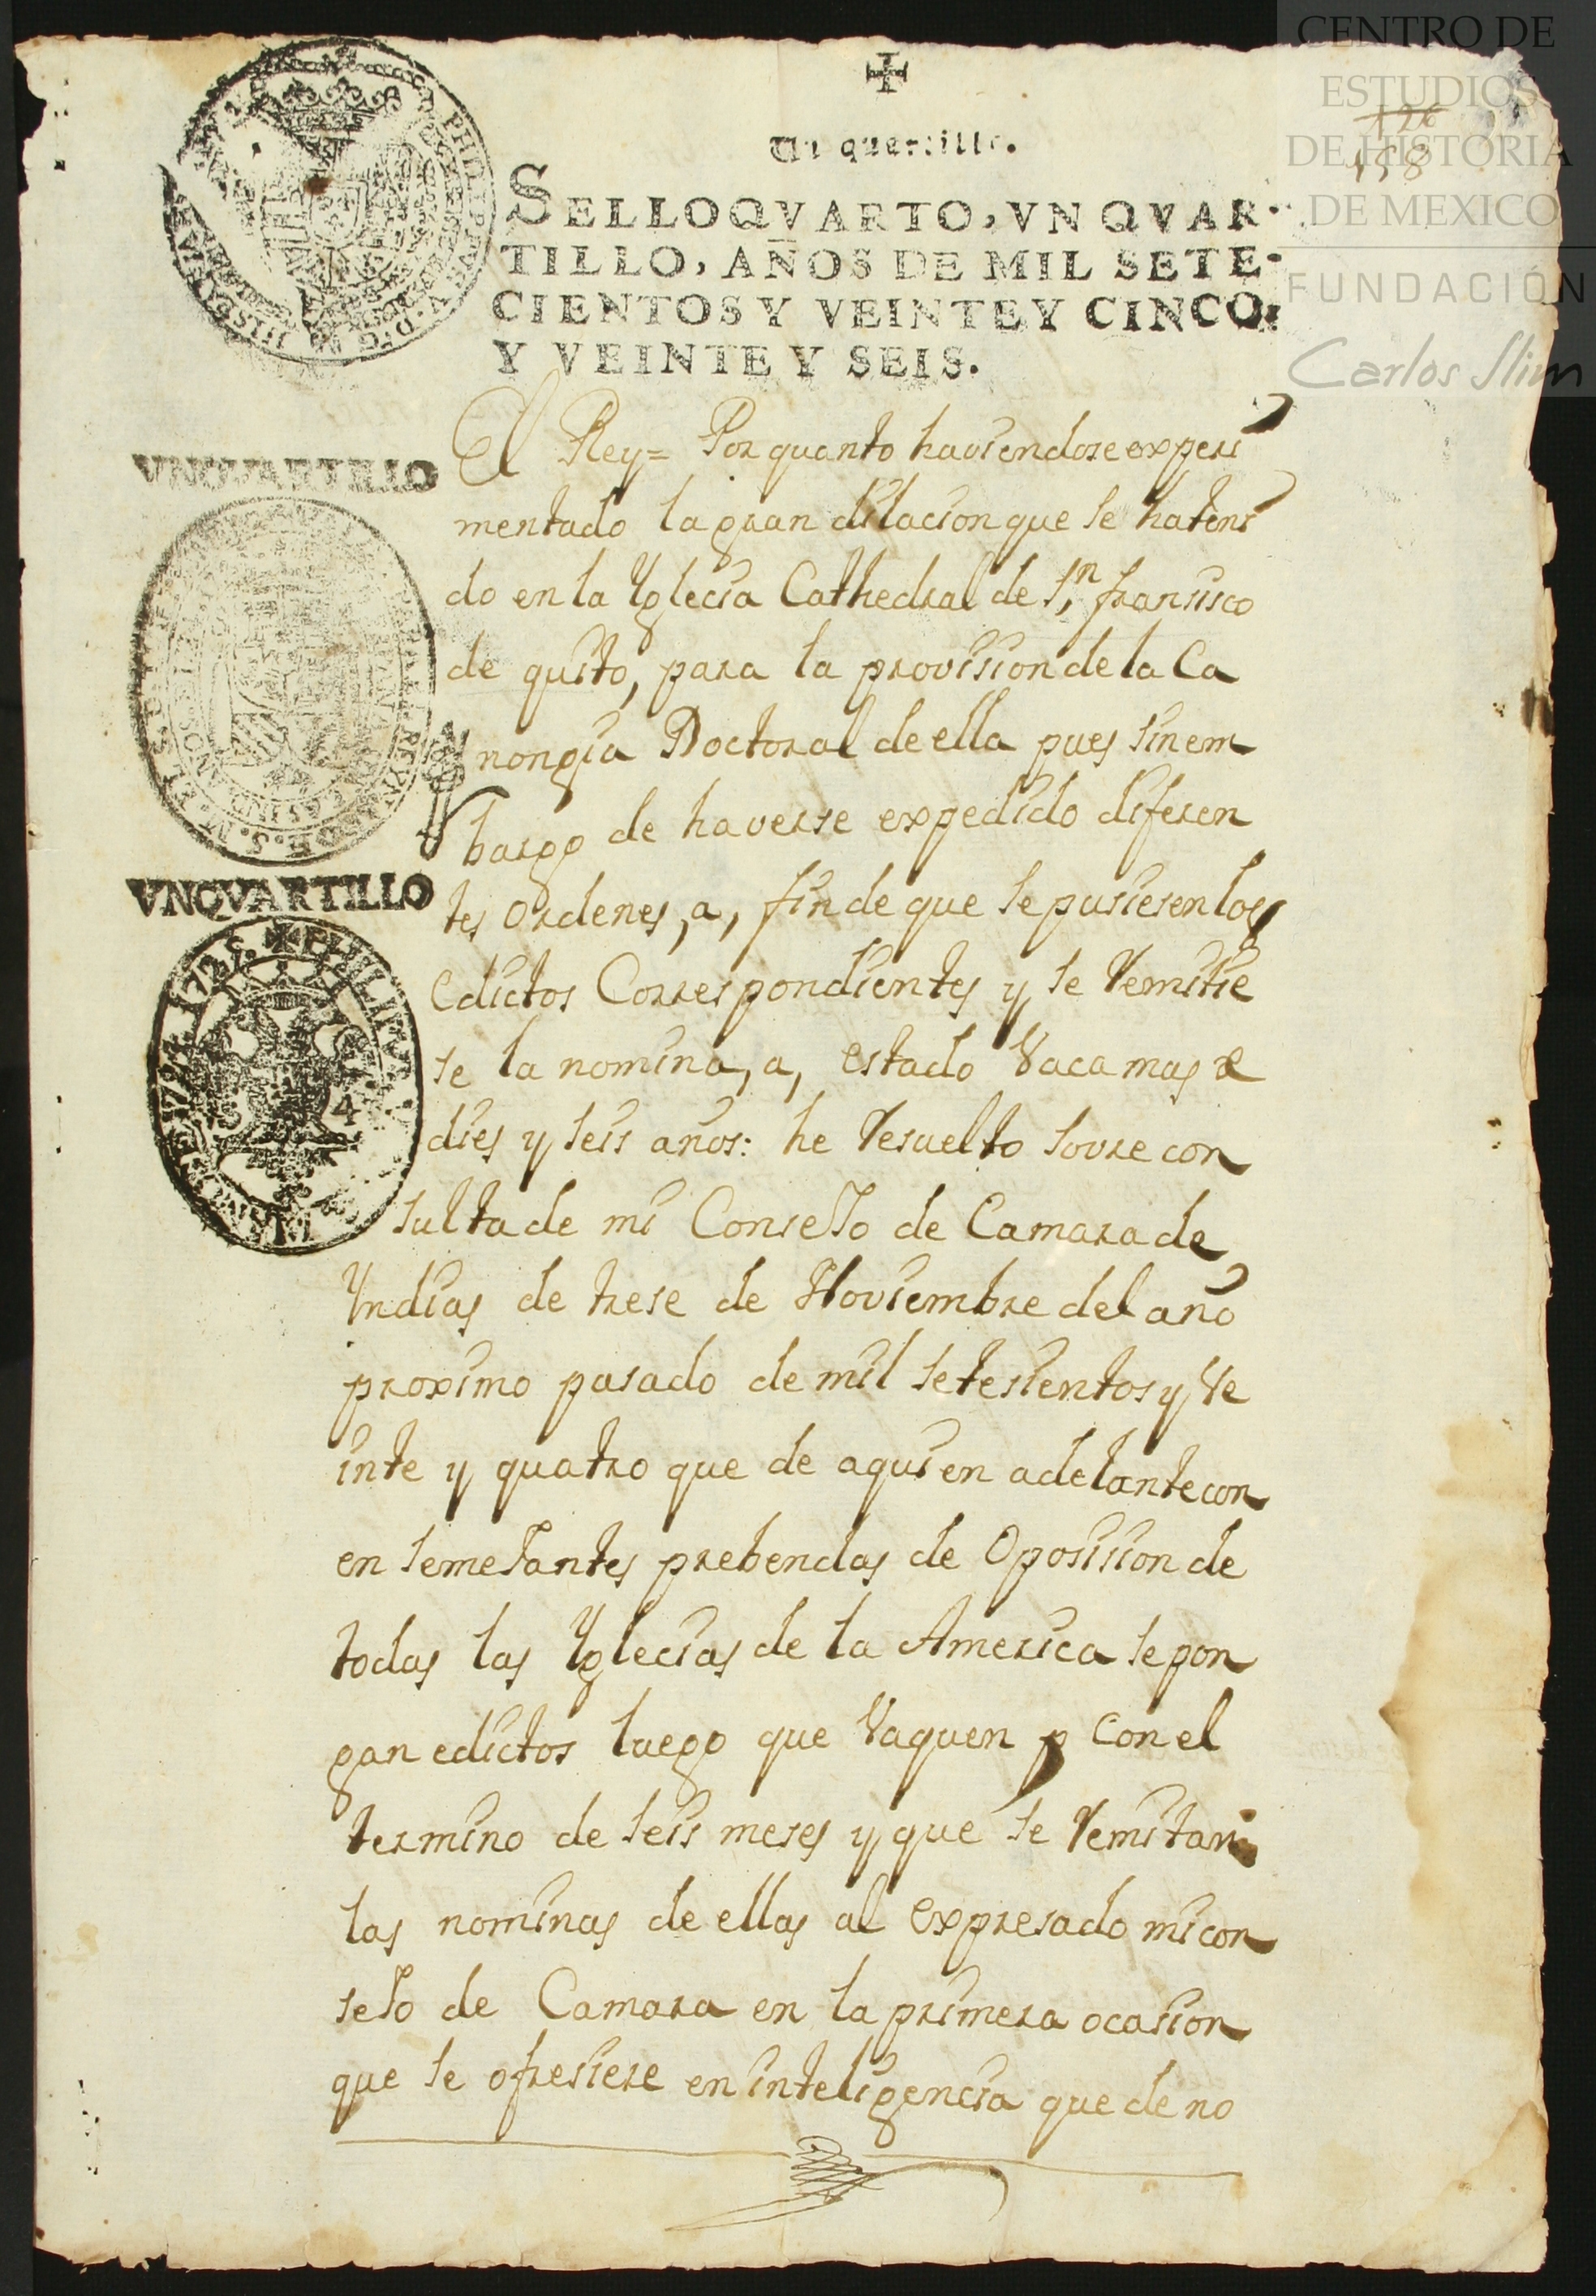 CENTRO DE
ESTUDIOS
DE HISTORIA
DE MEXICO
FUNDACIÓN
Carlos Slim
126
158
Un quartillo.
SELLO QVARTO, VN QVAR-
TILLO, AÑOS DE MIL SETE-
CIENTOS Y VEINTE Y CINCO,
Y VEINTE Y SEIS.
VNQVARTILLO
VNQVARTILLO
El Rey = Por quanto haviendose experi
mentado la gran dilacion que se ha teni
do en la Yglecia Cathedral de Sn. fransisco
de quito, para la provision de la Ca
nongia Doctoral de ella pues sin em
bargo de haverse expedido diferen
tes ordenes, a, fin de que se pusiesen los
edictos Correspondientes y se Remitie
se la nomina, a, estado Vaca mas de
dies y seis años: he Resuelto sovre con
sulta de mi Conseso de Camara de
Yndias de trese de Noviembre del año
proximo pasado de mil setesientos y Ve
inte y quatro que de aqui en adelante con
en semesantes prebendas de Oposision de
todas las Yglecias de la America se pon
gan edictos luego que Vaquen y con el
termino de seis meses y que se Remitan
las nominas de ellas al expresado mi con
seso de Camara en la primera ocasion
que se ofresiere en inteligencia que de no